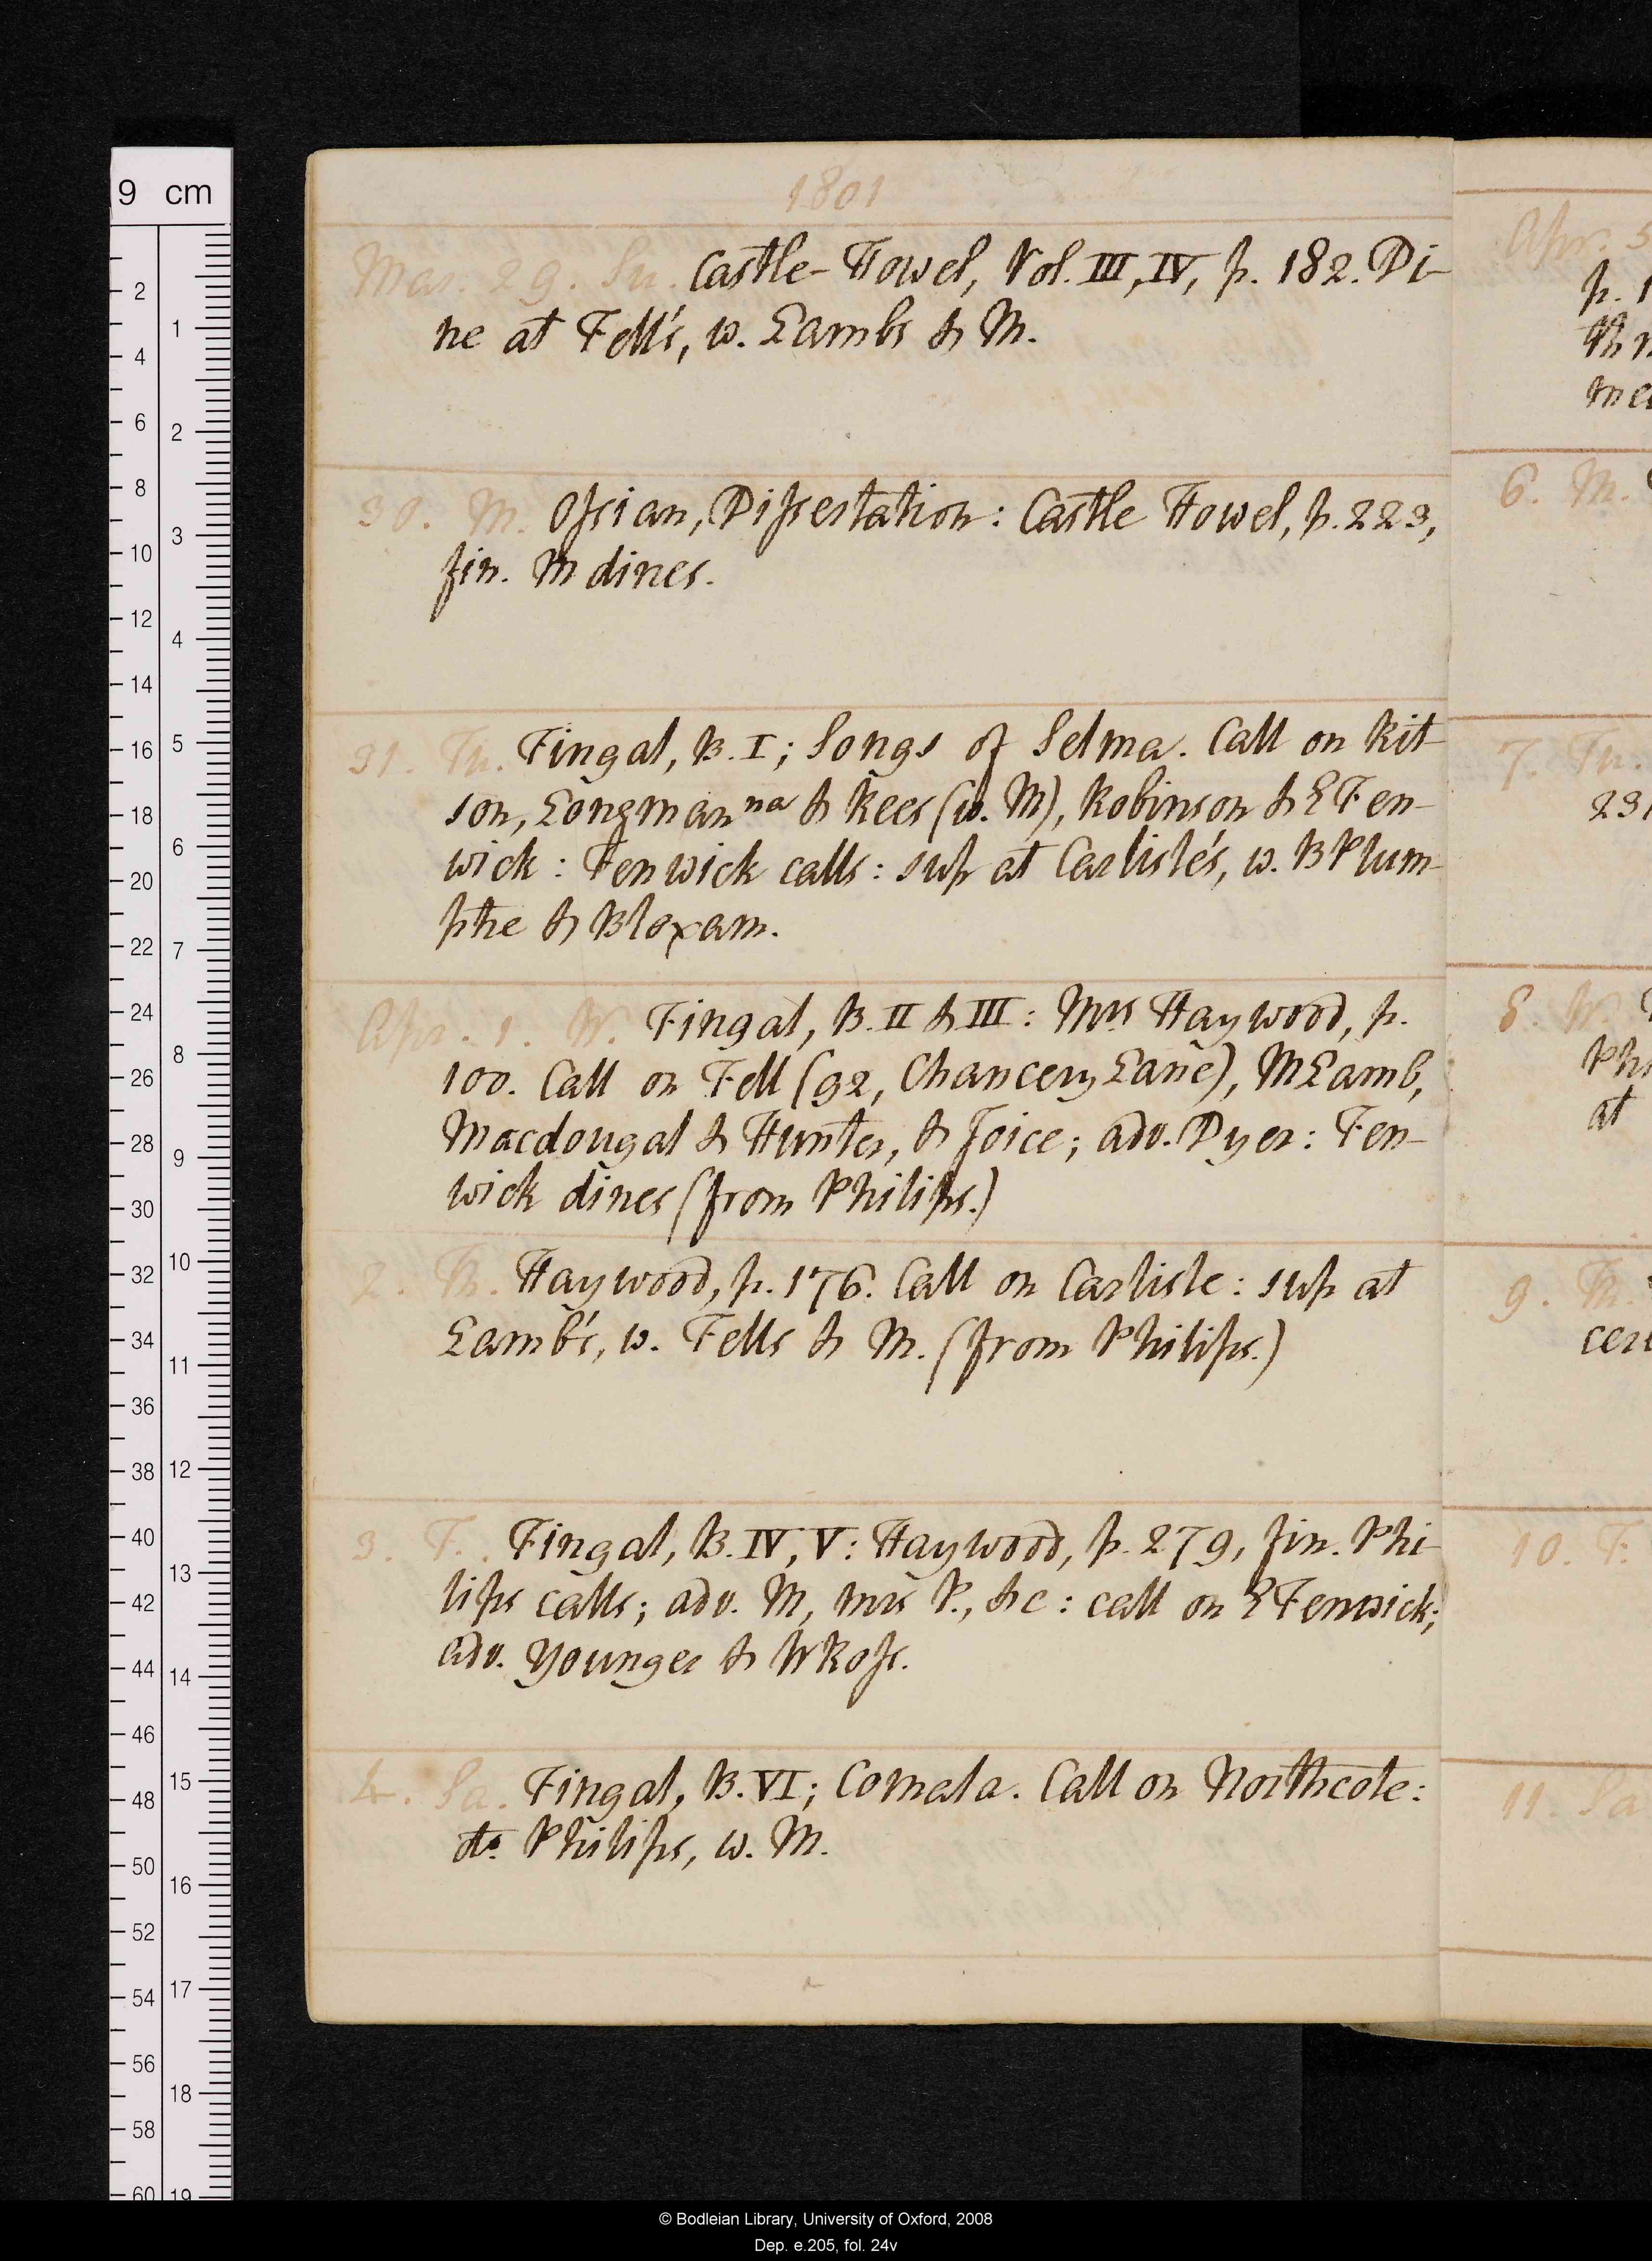 9 cm
1801
Mar. 29. Su. Castle-Howel, Vol. III, IV, p. 182. Di-
ne at Fell's, w. Lambs & M.
30. M. Ossian, Dissertation: Castle Howel, p. 223,
fin. M dines.
31. Tu. Fingal, B. I; Songs of Selma. Call on Rit-
son, Longman na & Rees (w. M), Robinson & E Fen-
wick: Fenwick calls: sup at Carlisle's, w. B Plum-
ptre & Bloxam.
Apr. 1. W. Fingal, B. II & III: Mrs Haywood, p.
100. Call on Fell (92, Chancery Lane), M Lamb,
Macdougal & Hunter, & Joice; adv. Dyer: Fen-
wick dines (from Philips.)
2. Th. Haywood, p. 176. Call on Carlisle: sup at
Lamb's, w. Fells & M. (from Philips.)
3. F. Fingal, B. IV, V: Haywood, p. 279, fin. Phi-
lips calls; adv. M, mrs P., &c: call on E Fenwick;
adv. Younger & W Ross.
4. Sa. Fingal, B. VI; Comala. Call on Northcote:
do. Philips, w. M.
Apr. 5
p. 1
me
6. M.
7. Tu.
231
8. W.
Phi
at
9. Th.
cer
10. F.
11. Sa
© Bodleian Library, University of Oxford, 2008
Dep. e.205, fol. 24v